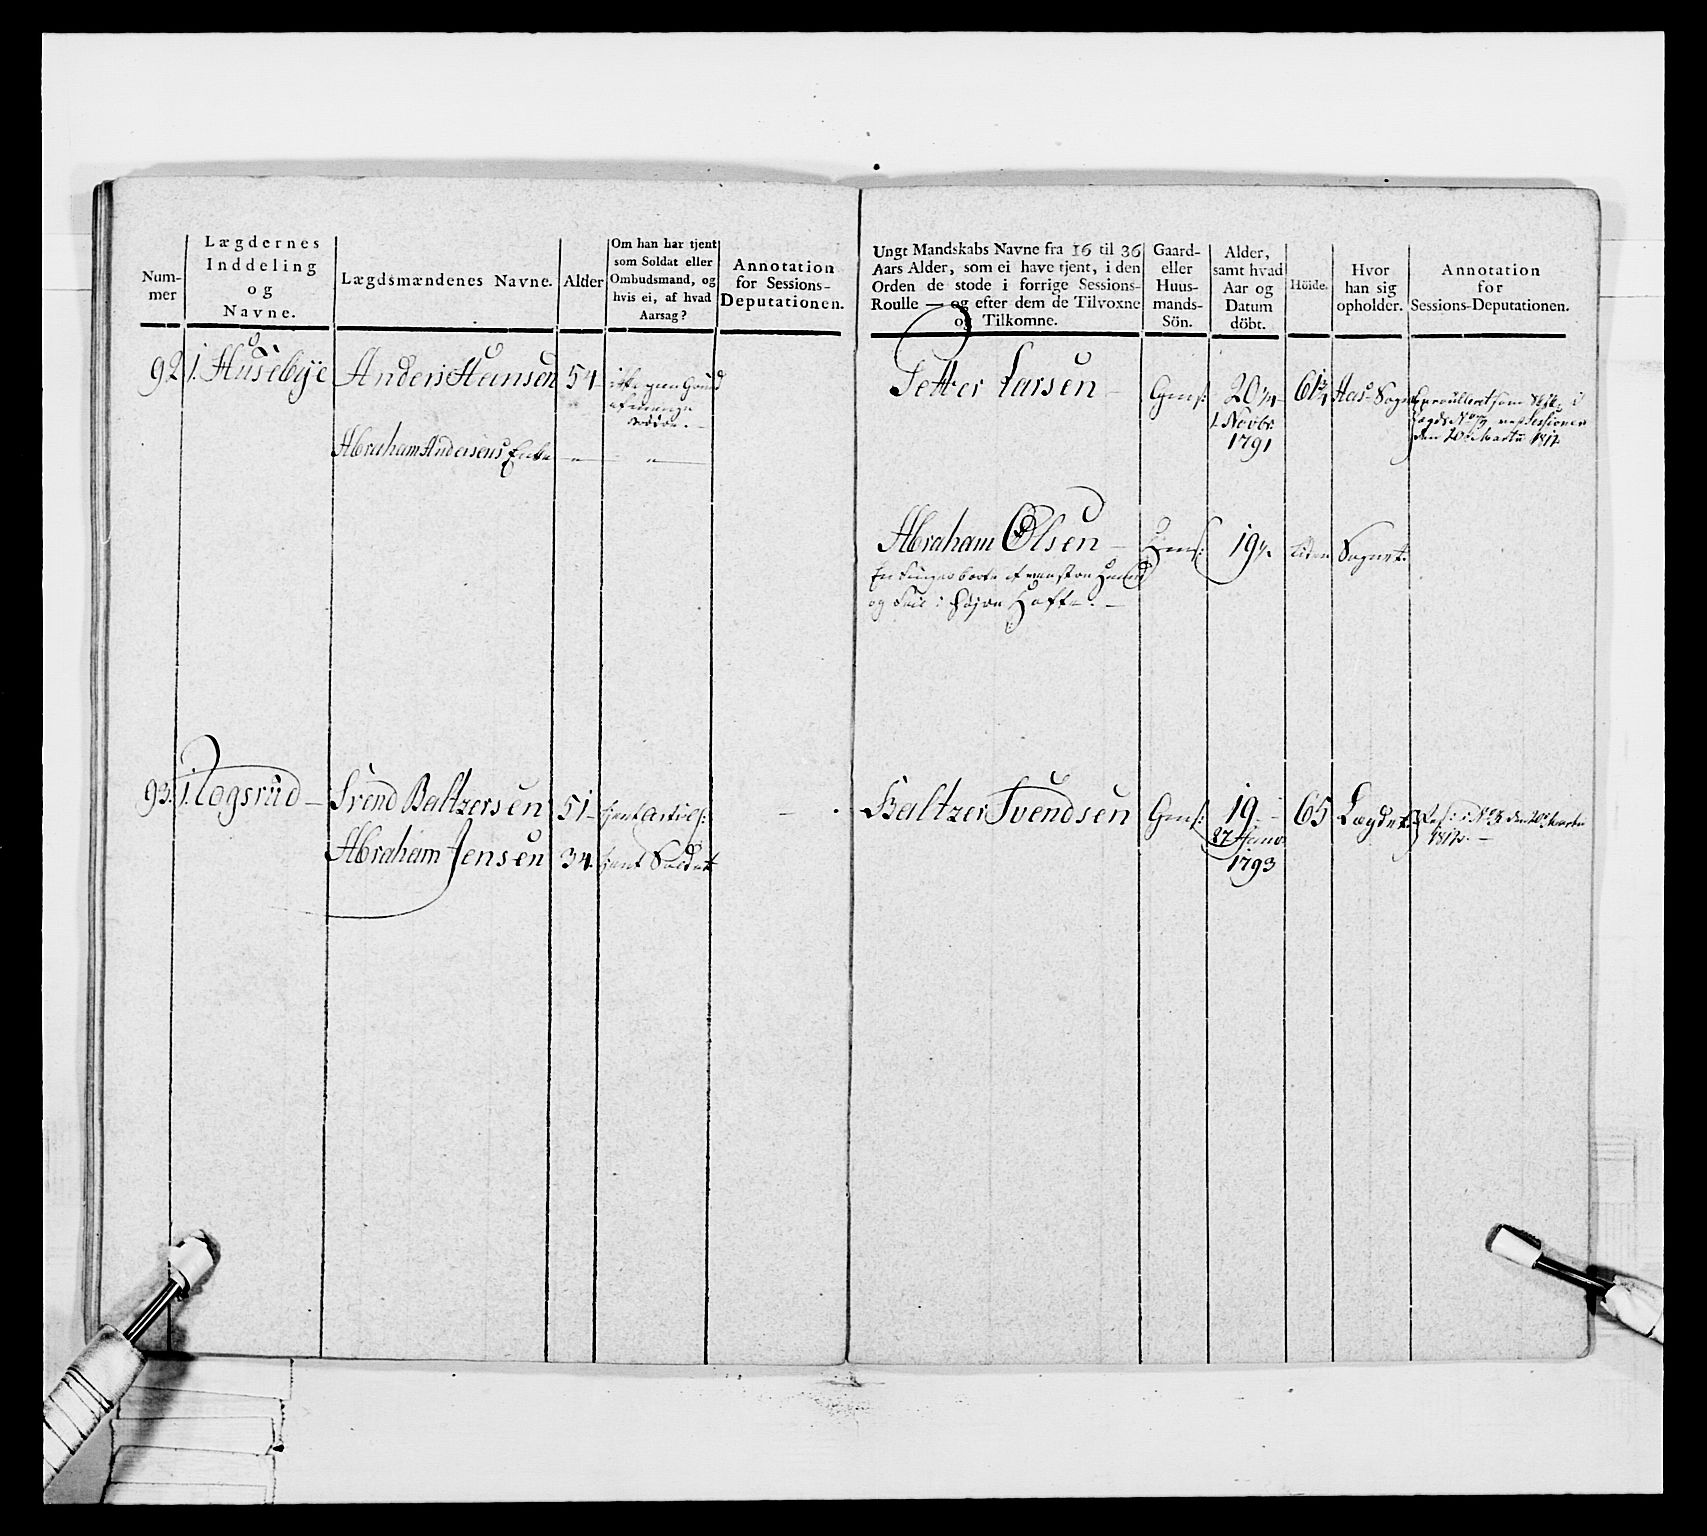 Num-
mer
Lægdernes
Inddeling
og
Navne.
Lægdsmændenes Navne.
Alder
Om han har tjent
som Soldat eller
Ombudsmand, og
hvis ei, af hvad
Aarsag?
Annotation
for Sessions-
Deputationen.
92
1. Husebÿe
Anders Hansen
54
Abraham Andersens Enke
93.
1. Togsrüd
Svend Baltzersen
51
Abraham Jensen
34
tient Soldat
Ungt Mandskabs Navne fra 16 til 36
Aars Alder, som ei have tjent, i den
Orden de stode i forrige Sessions-
Roulle — og efter dem de Tilvoxne
og Tilkomne.
Gaard-
eller
Huus-
mands-
Sön.
Alder,
samt hvad
Aar og
Datum
döbt.
Höide.
Hvor
han sig
opholder.
Annotation
for
Sessions-Deputationen.
Petter Larsen
Gms:
20
61¾
Aas Sogn
1 Novbr
1791
Abraham Olsen
Hms:
19
liden
Sognet.
og Feil i Højre Hofte.
Baltzer Svendsen
Gms:
19
65
Lægdet
27 Janv
1793